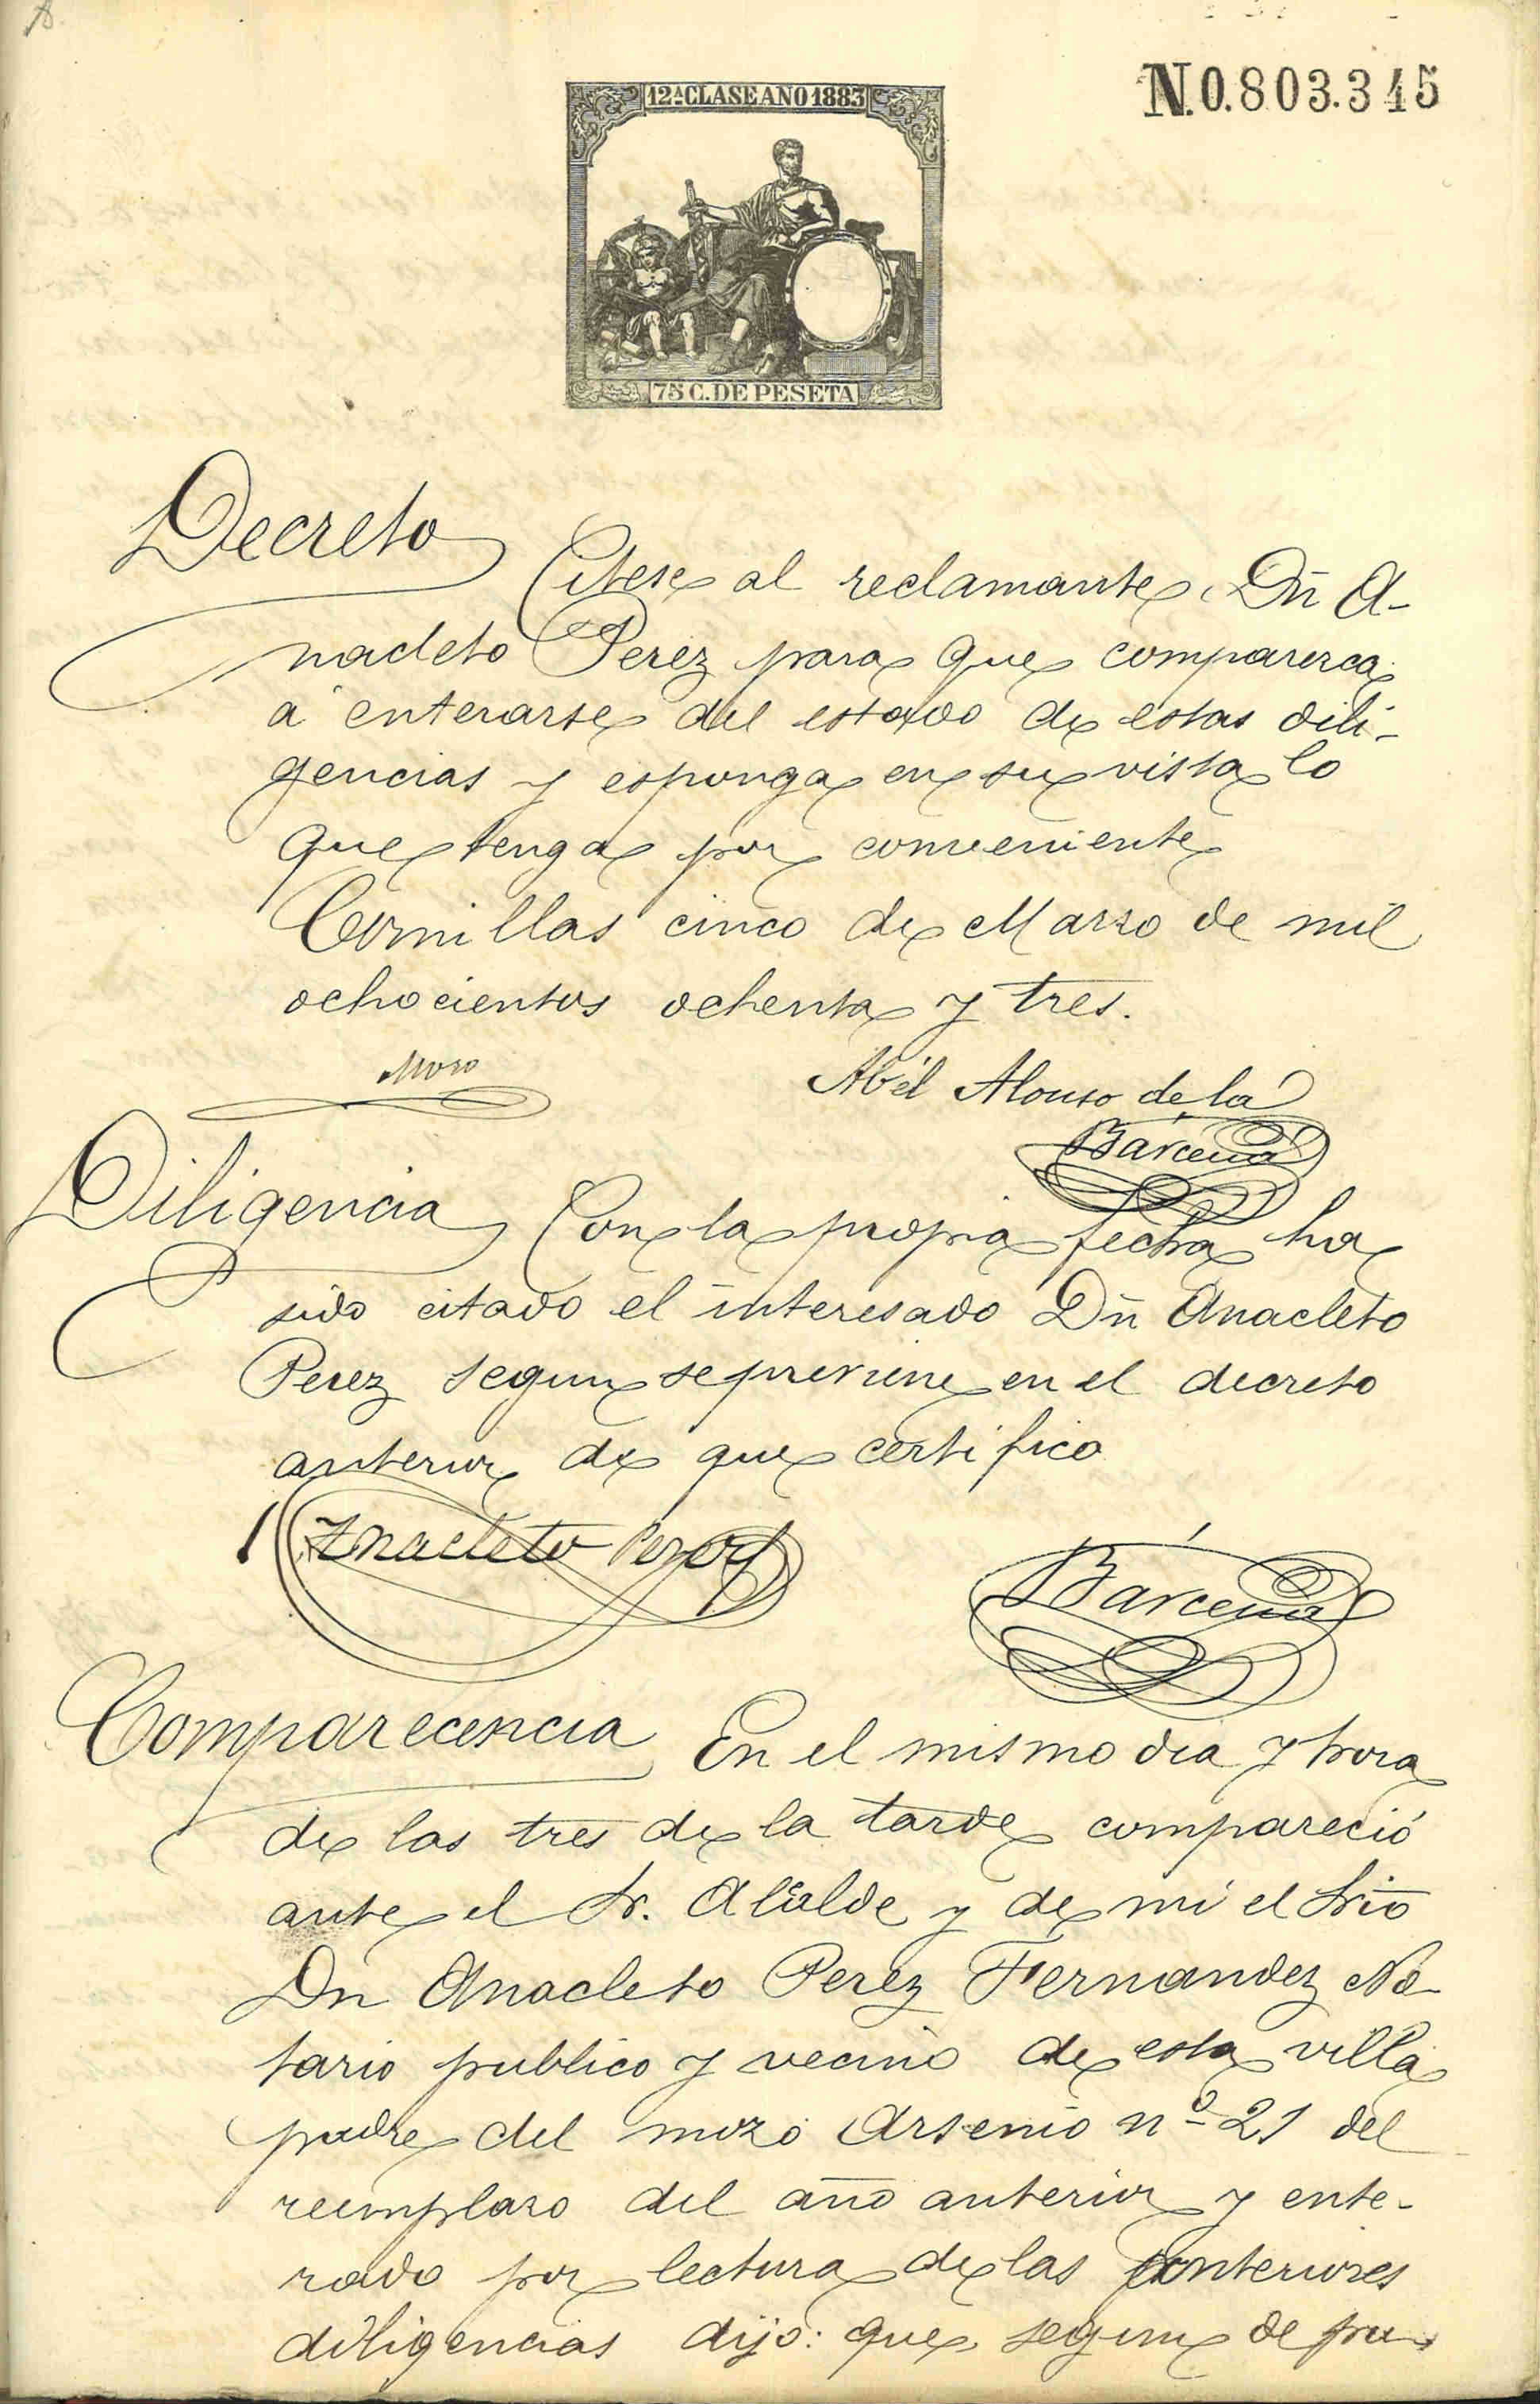 N.0.803.345
12ª CLASE AÑO 1883
75 C. DE PESETA
Decreto Citese al reclamante Dn̄ A-
nacleto Perez para que comparezca
á enterarse del estado de estas dili-
gencias y esponga en su vista lo
que tenga por conveniente
Comillas cinco de Marzo de mil
ochocientos ochenta y tres.
Moro
Abél Alonso de la
Bárcena
Diligencia Con la propia fecha ha
sido citado el interesado Dn̄ Anacleto
Perez segun se previene en el decreto
anterior de que certifico
Anacleto Perez
Bárcena
Comparecencia En el mismo dia y hora
de las tres de la tarde compareció
ante el Sr. Alcalde y de mi el Srio
Dn Anacleto Perez Fernandez No-
tario publico y vecino de esta villa
padre del mozo Arsenio nº 21 del
reemplazo del año anterior y ente-
rado por lectura de las anteriores
diligencias dijo: que segun se pru-